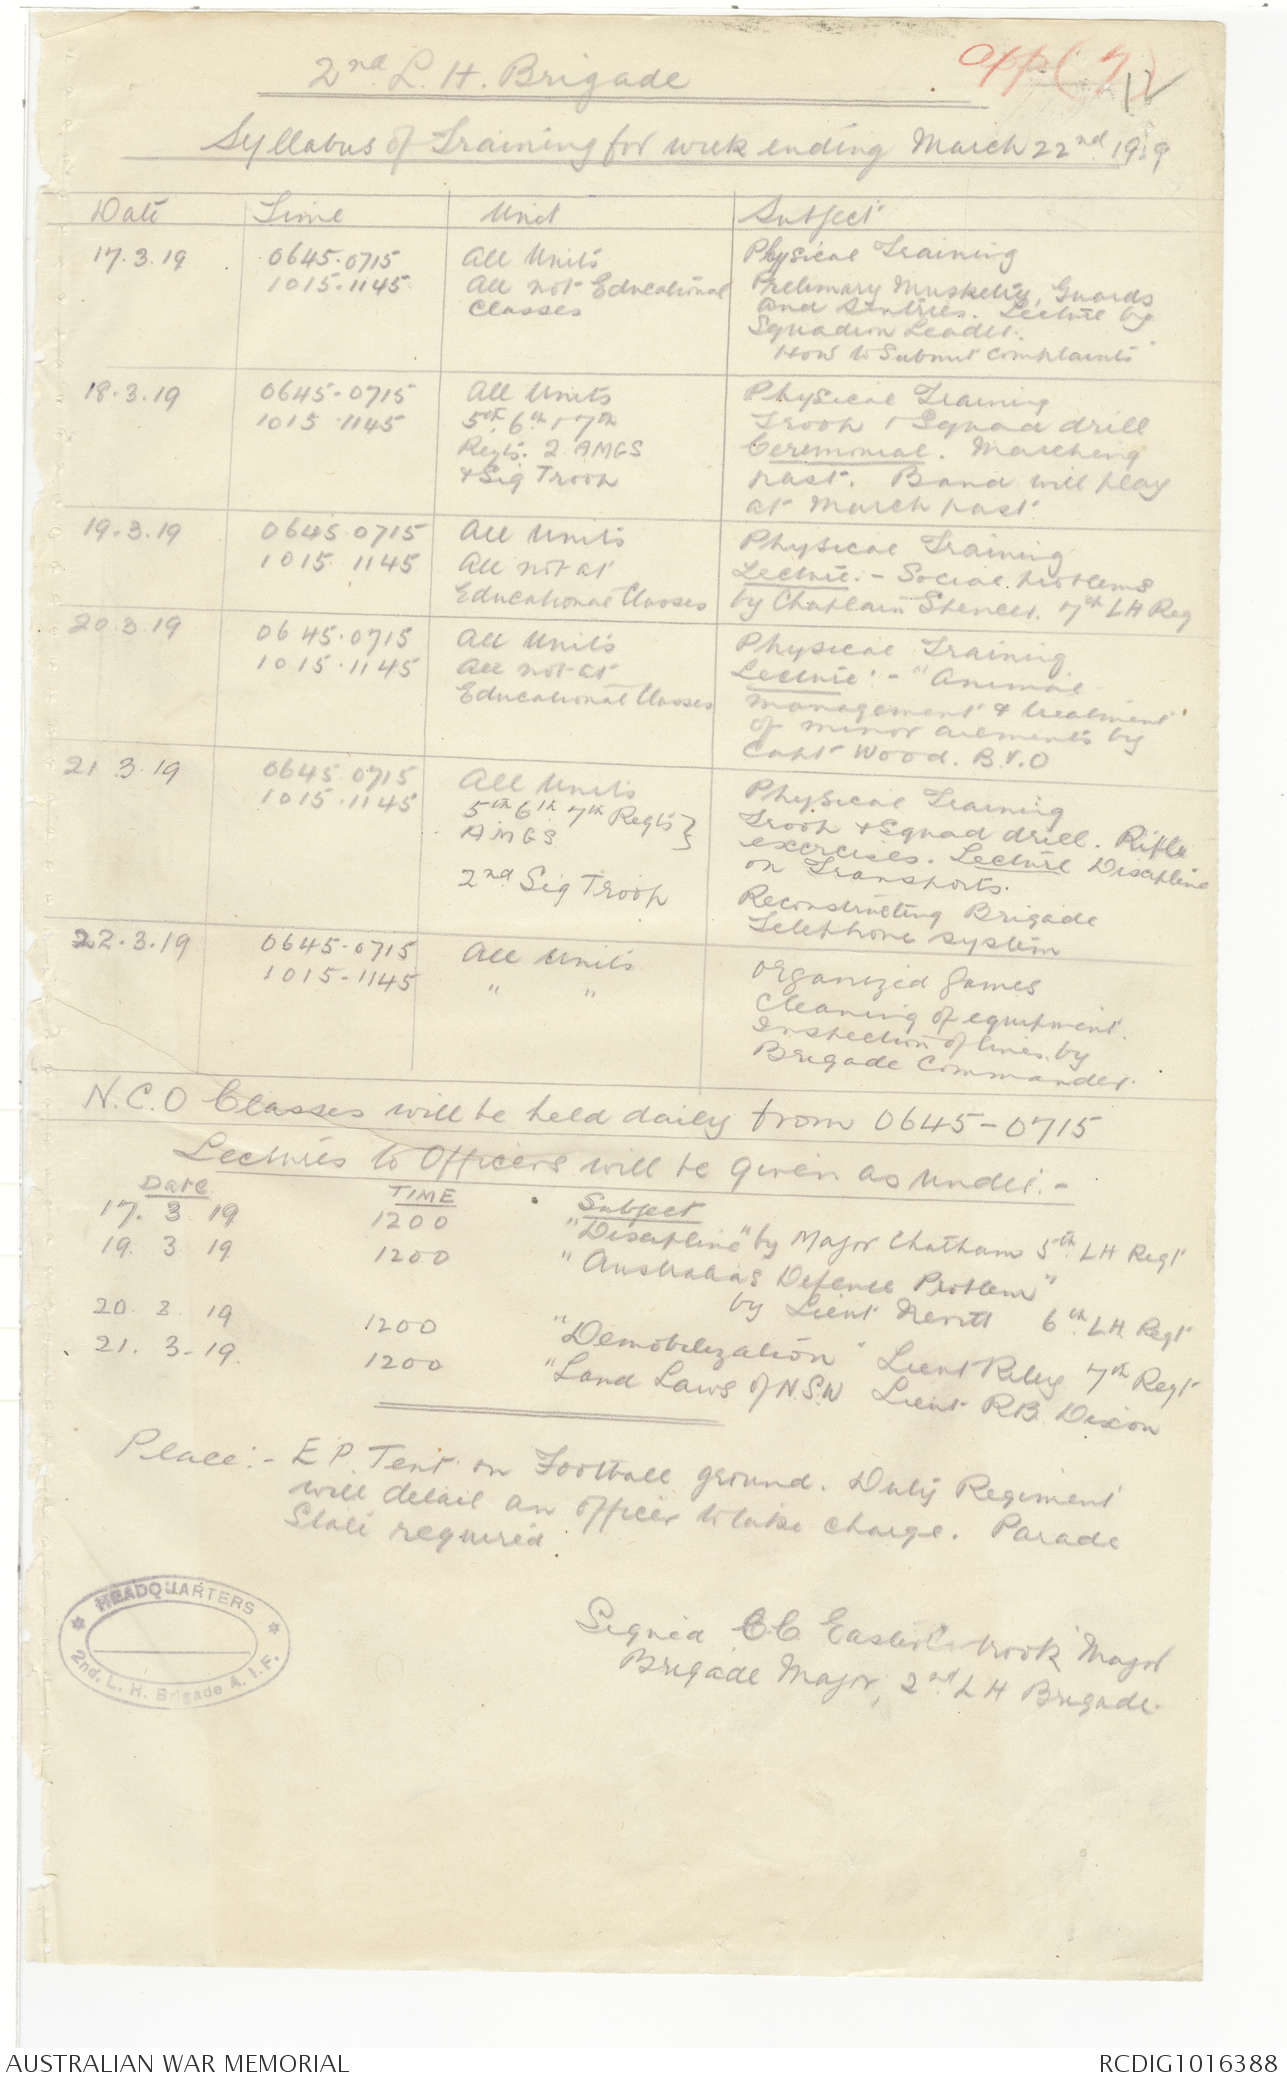 2nd L. H. Brigade
App (7)
12
Syllabus of Training for week ending March 22nd 1919
Date Time Unit Subject
17.3.19 0645-0715 All Units Physical Training
1015-1145 All not Educational Classes Prelimary Musketry, Guards
and Sentries. Lecture by
Squadron Leader.
How to Submit Complaints
18.3.19 0645-0715 All Units Physical Training
1015-1145 5th, 6th, & 7th Troop & Squad drill
Regts. 2 AMGS Ceremonial. Marching
& Sig Troop past. Band will play
at March past
19.3.19 0645-0715 All Units Physical Training
1015-1145 All not at Lecture:- Social problems
Educational Classes by Chaplain Spencer. 7th LH Reg
20.3.19 0645-0715 All Units Physical Training
1015-1145 All not at Lecture:- "Animal
Educational Classes management & treatment
of minor ailments by
Capt Wood. B.V.O
21.3.19 0645-0715 All Units Physical Training
1015-1145 5th 6th 7th Regts } Troop & Squad drill. Rifle
AMGS exercises. Lecture Discipline
on Transports.
2nd Sig Troop Reconstructing Brigade
Telephone System
22.3.19 0645-0715 All Units Organized Games
1015-1145 " " Cleaning of equipment.
Inspection of lines by
Brigade Commander.
N.C.O Classes will be held daily from 0645-0715
Lectures to Officers will be given as under:-
Date TIME Subject
17.3.19 1200 "Discipline" by Major Chatham 5th LH Regt
19.3.19 1200 "Australias Defence Problem"
by Lieut Merritt 6th LH Regt
20.3.19 1200 "Demobilization" Lieut Riley 7th Regt
21.3.19. 1200 "Land Laws of N.S.W Lieut R.B. Dixon
Place:- E P Tent on Football ground. Duty Regiment
will detail an officer to take charge. Parade
State required.
Signed C C Easterbrook Major
Brigade Major, 2nd L H Brigade.
HEADQUARTERS
2nd. L. H. Brigade A. I. F.
AUSTRALIAN WAR MEMORIAL RCDIG1016388